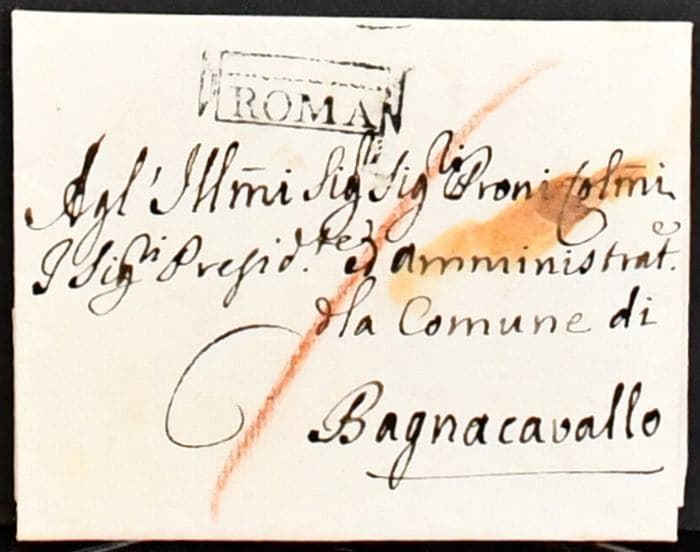 ROMA
Agl' Illm̃i Sig.ri Sig.ri Proni Colm̃i
I Sig.ri Presid.te, d'amministrat.e
dla Comune di
Bagnacavallo